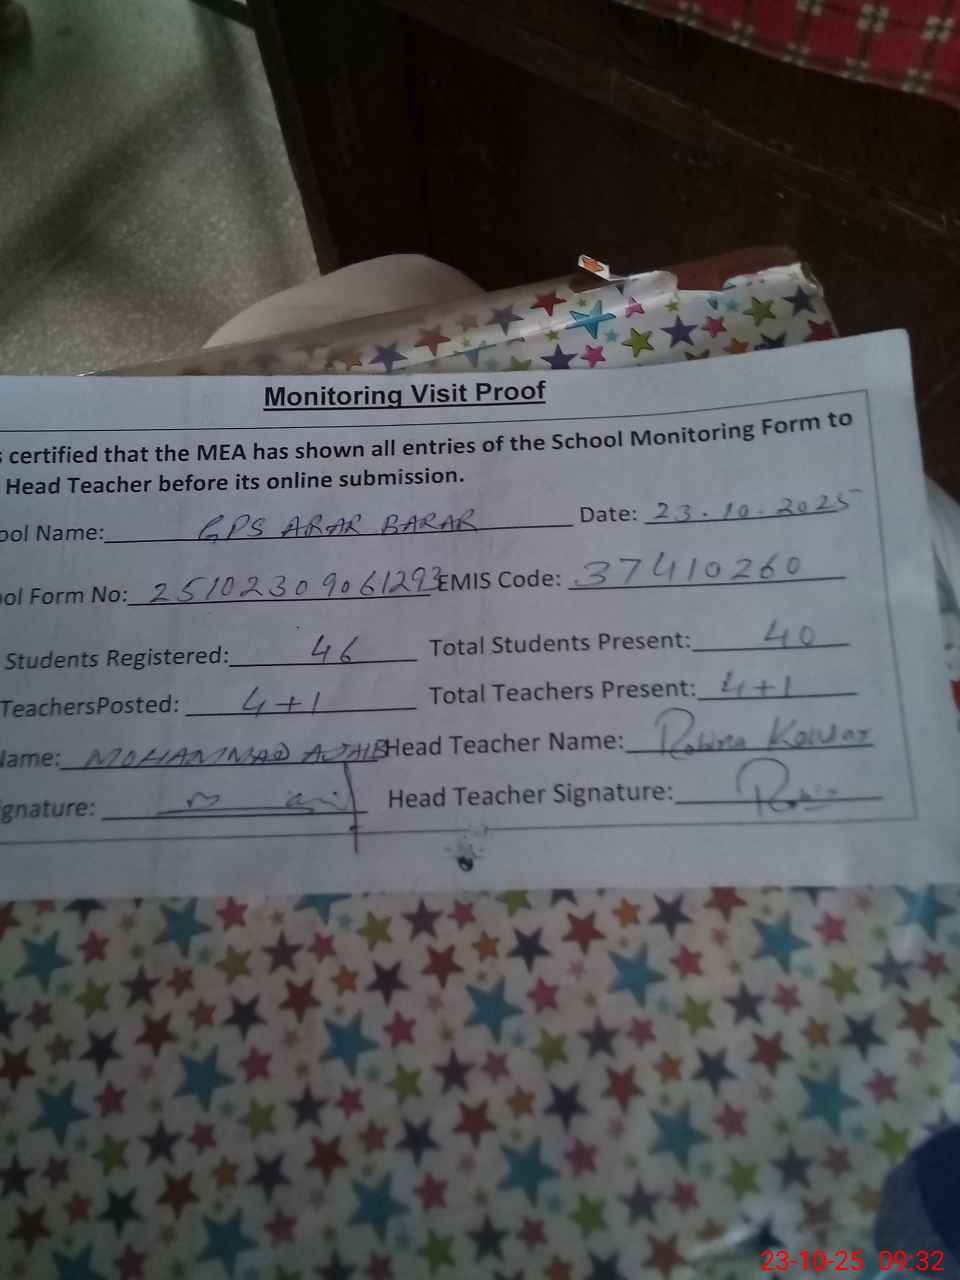 Monitoring Visit Proof
certified that the MEA has shown all entries of the School Monitoring Form to
Head Teacher before its online submission.
ool Name: GPS ARAR BARAR Date: 23.10.2025
ol Form No: 25102309061293 EMIS Code: 37410260
Students Registered: 46 Total Students Present: 40
TeachersPosted: 4+1 Total Teachers Present: 4+1
Name: MOHAMMAD AJAIB Head Teacher Name: Kousar
gnature: Head Teacher Signature:
23-10-25 09:32